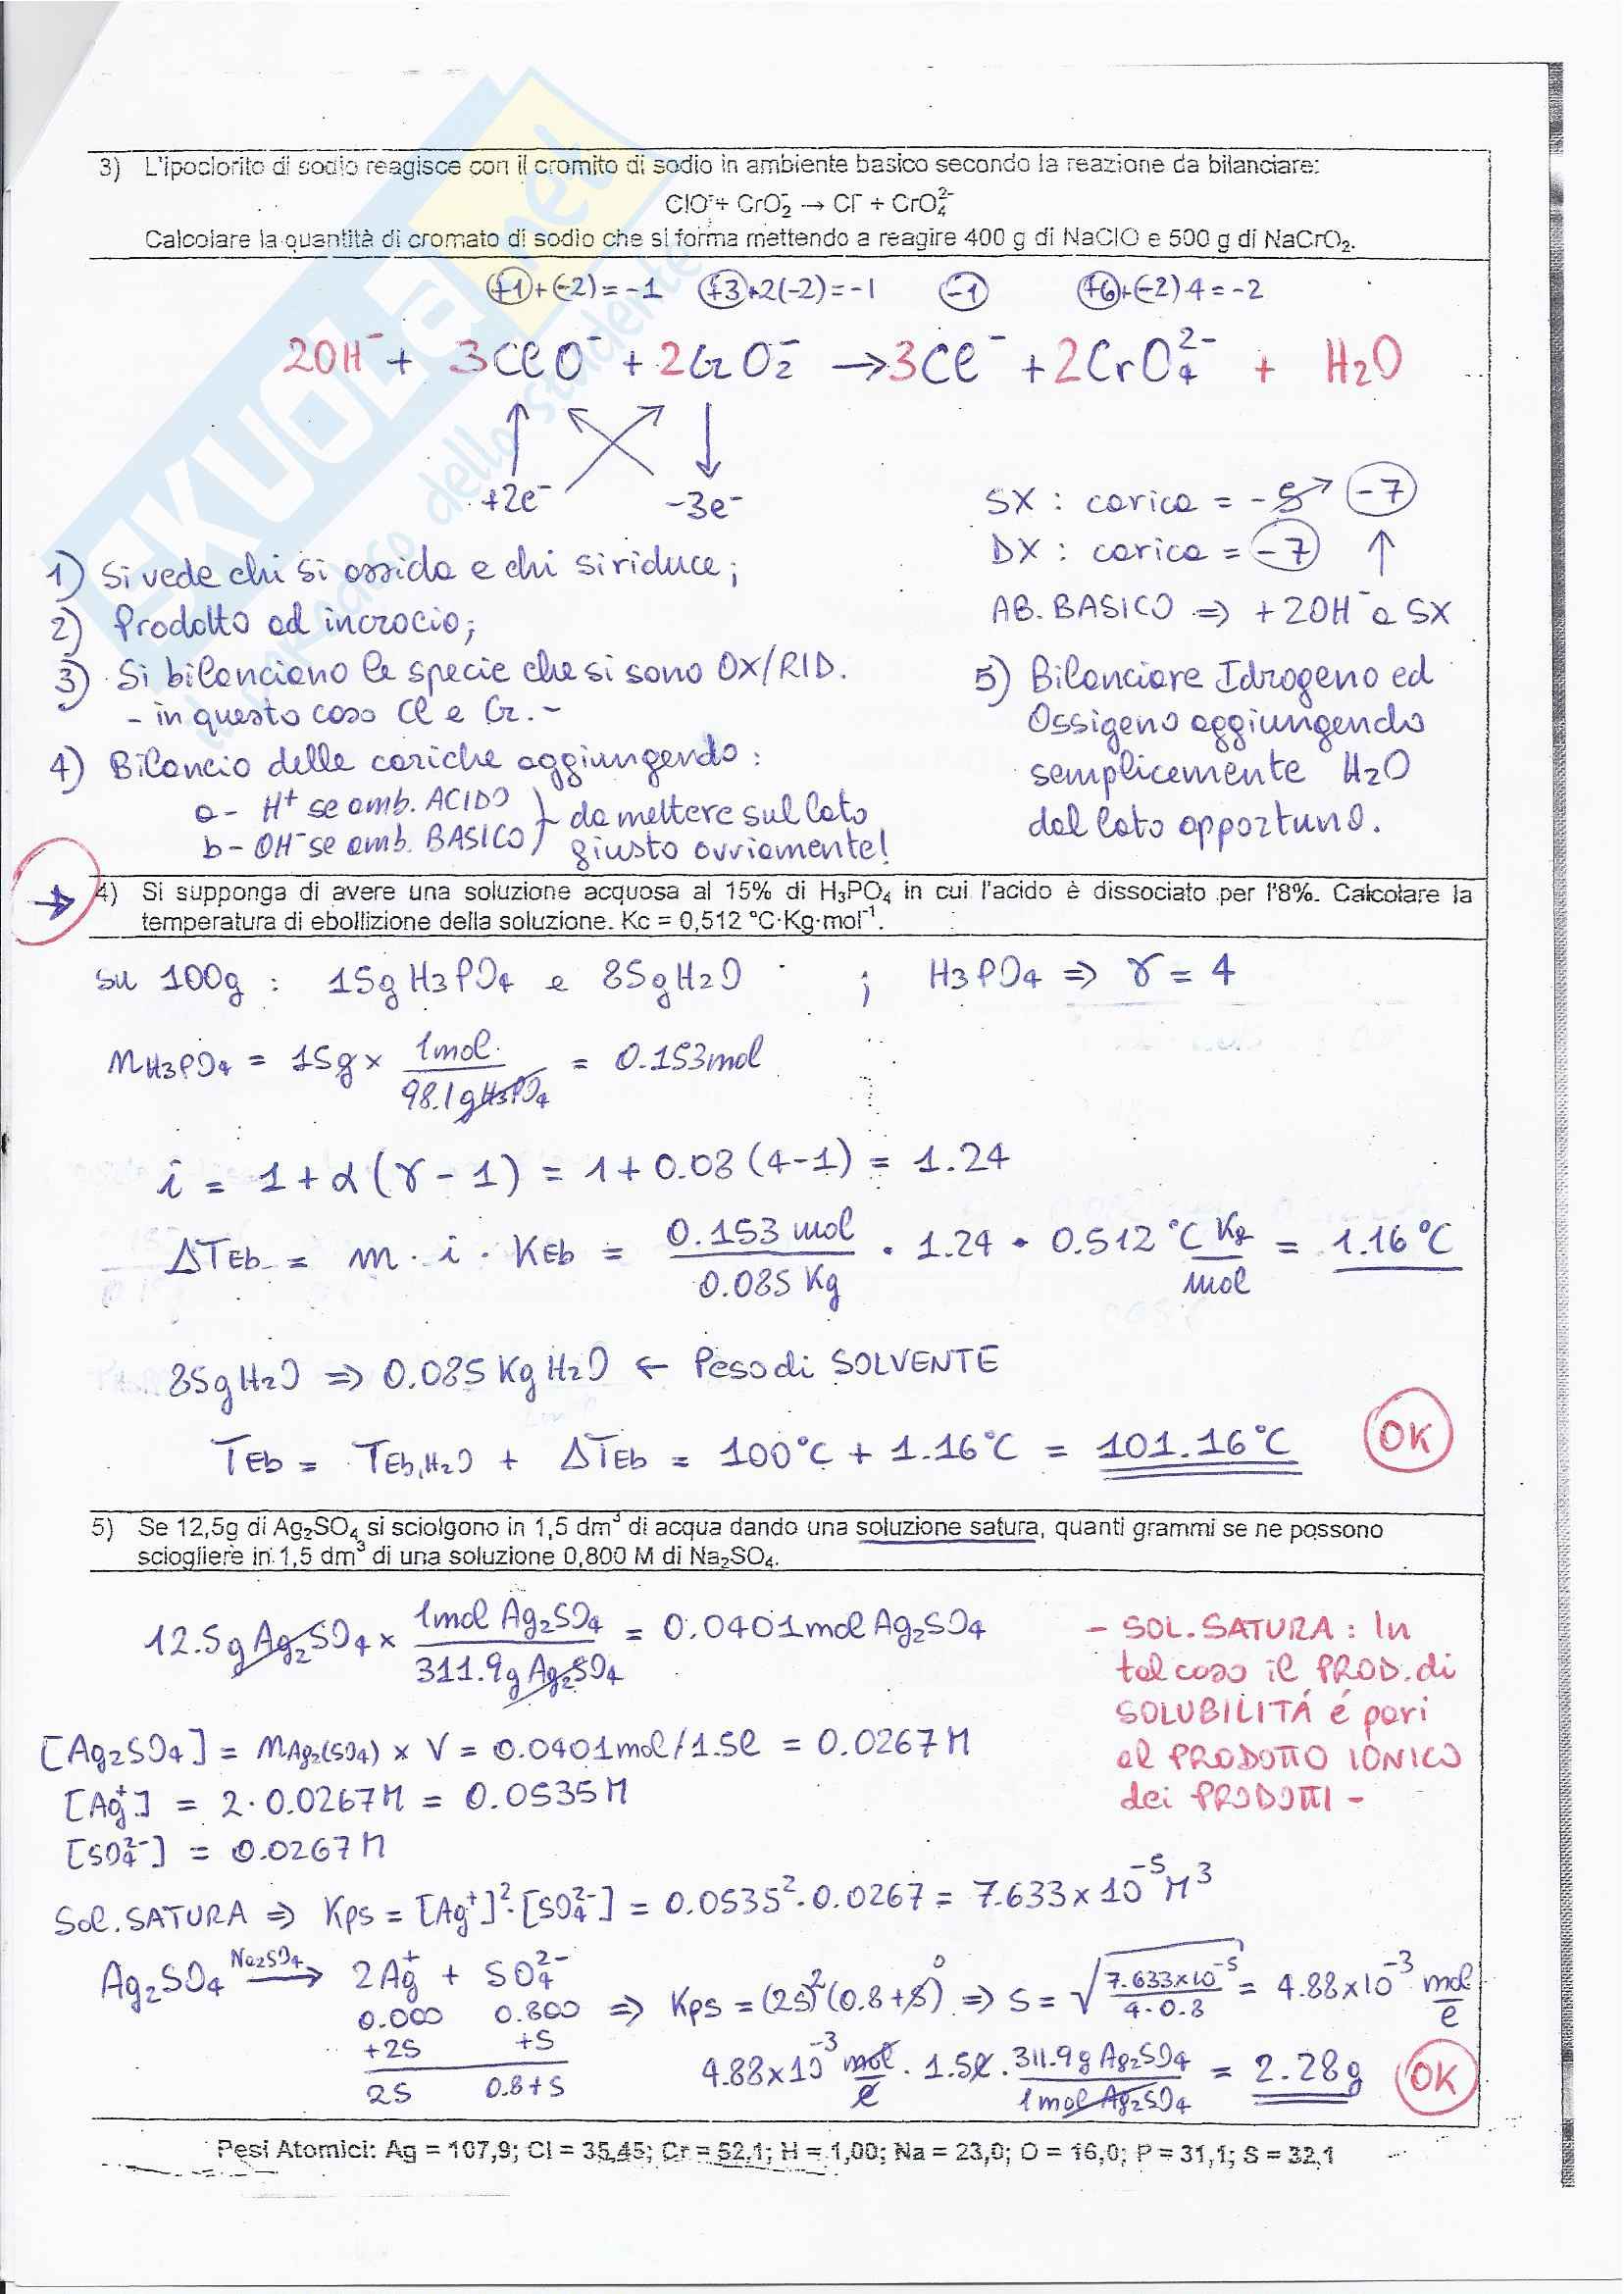 3) L'ipoclorito di sodio reagisce con il cromito di sodio in ambiente basico secondo la reazione da bilanciare:
ClO⁻ + CrO₂⁻ → Cl⁻ + CrO₄²⁻
Calcolare la quantità di cromato di sodio che si forma mettendo a reagire 400 g di NaClO e 500 g di NaCrO₂.
+1+(-2)=-1 +3+2(-2)=-1 -1 +6+(-2)4=-2
2OH⁻ + 3ClO⁻ + 2CrO₂⁻ → 3Cl⁻ + 2CrO₄²⁻ + H₂O
+2e⁻ -3e⁻
SX : carica = -5 → -7
DX : carica = -7 ↑
AB. BASICO ⇒ +2OH⁻ a SX
1) Si vede chi si ossida e chi si riduce;
2) Prodotto ad incrocio;
3) Si bilanciano le specie che si sono OX/RID.
- in questo caso Cl e Cr. -
4) Bilancio delle cariche aggiungendo :
a - H⁺ se amb. ACIDO } da mettere sul lato
b - OH⁻ se amb. BASICO } giusto ovviamente!
5) Bilanciare Idrogeno ed
Ossigeno aggiungendo
semplicemente H₂O
dal lato opportuno.
SKUOLA.net
il paradiso dello studente
→ 4) Si supponga di avere una soluzione acquosa al 15% di H₃PO₄ in cui l'acido è dissociato per l'8%. Calcolare la
temperatura di ebollizione della soluzione. Kc = 0,512 °C·Kg·mol⁻¹.
su 100g : 15g H₃PO₄ e 85g H₂O ; H₃PO₄ ⇒ γ = 4
n H₃PO₄ = 15g × 1mol / 98.1g H₃PO₄ = 0.153mol
i = 1 + α(γ - 1) = 1 + 0.08 (4-1) = 1.24
ΔTEb = m · i · KEb = 0.153 mol / 0.085 Kg · 1.24 · 0.512 °C Kg / mol = 1.16 °C
85g H₂O ⇒ 0.085 Kg H₂O ← Peso di SOLVENTE
TEb = TEb,H₂O + ΔTEb = 100°C + 1.16°C = 101.16°C OK
5) Se 12,5g di Ag₂SO₄ si sciolgono in 1,5 dm³ di acqua dando una soluzione satura, quanti grammi se ne possono
sciogliere in 1,5 dm³ di una soluzione 0,800 M di Na₂SO₄.
12.5g Ag₂SO₄ × 1mol Ag₂SO₄ / 311.9g Ag₂SO₄ = 0.0401mol Ag₂SO₄
- SOL. SATURA : In
tal caso il PROD. di
SOLUBILITÁ é pari
al PRODOTTO IONICO
dei PRODOTTI -
[Ag₂SO₄] = nAg₂(SO₄) × V = 0.0401mol/1.5l = 0.0267 M
[Ag⁺] = 2 · 0.0267 M = 0.0535 M
[SO₄²⁻] = 0.0267 M
Sol. SATURA ⇒ Kps = [Ag⁺]² · [SO₄²⁻] = 0.0535² · 0.0267 = 7.633 × 10⁻⁵ M³
Ag₂SO₄ Na₂SO₄ → 2Ag⁺ + SO₄²⁻
0.000 0.800
+2S +S
2S 0.8+S
⇒ Kps = (2S)² (0.8 + S) 0 ⇒ S = √ 7.633×10⁻⁵ / 4·0.8 = 4.88×10⁻³ mol / l
4.88×10⁻³ mol / l · 1.5l · 311.9g Ag₂SO₄ / 1mol Ag₂SO₄ = 2.28g OK
Pesi Atomici: Ag = 107,9; Cl = 35,45; Cr = 52,1; H = 1,00; Na = 23,0; O = 16,0; P = 31,1; S = 32,1